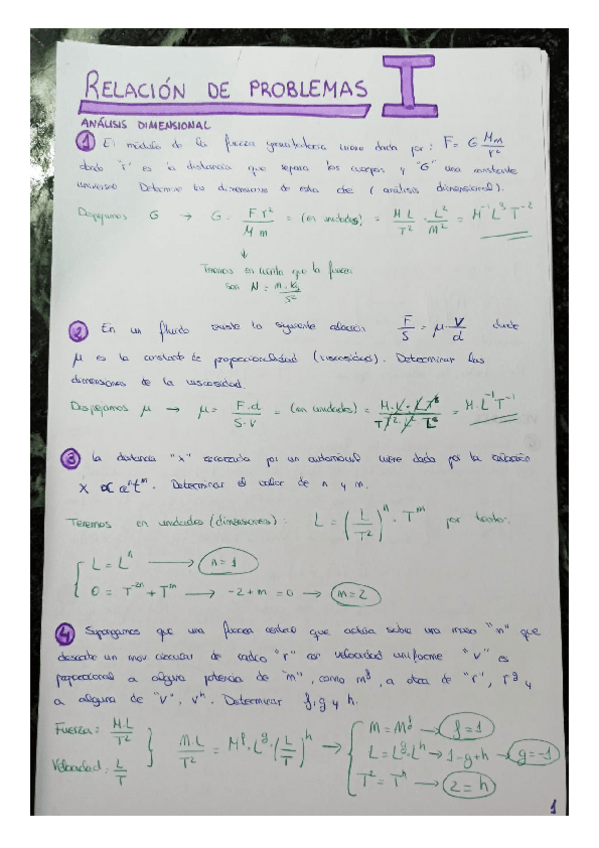 RELACIÓN DE PROBLEMAS I
ANÁLISIS DIMENSIONAL
1 El módulo de la fuerza gravitatoria viene dada por: F = G Mm/r²
donde "r" es la distancia que separa los cuerpos y "G" una constante
universal. Determine las dimensiones de esta cte (análisis dimensional).
Despejamos G → G = F r²/M m = (en unidades) = M L/T² · L²/M² = M⁻¹ L³ T⁻²
↓
Tenemos en cuenta que la fuerza
son N = m·kg/s²
2 En un fluido existe la siguiente relación F/S = μ · v/d donde
μ es la constante de proporcionalidad (viscosidad). Determinar las
dimensiones de la viscosidad.
Despejamos μ → μ = F·d/S·v = (en unidades) = = M·L⁻¹T⁻¹
3 La distancia "x" recorrida por un automóvil viene dada por la
x ∝ aⁿtᵐ. Determinar el valor de n y m.
Tenemos en unidades (dimensiones): L = (L/T²)ⁿ · Tᵐ por tanto:
L = Lⁿ → n = 1
0 = T⁻²ⁿ + Tᵐ → -2+m = 0 → m = 2
4 Supongamos que una fuerza central que actúa sobre una masa "m" que
describe un mov circular de radio "r" con velocidad uniforme "v" es
proporcional a alguna potencia de "m", como mᶠ, a otra de "r", rᵍ y
a alguna de "v", vʰ. Determinar f, g y h.
Fuerza: M·L/T²
Velocidad: L/T
M·L/T² = Mᶠ · Lᵍ · (L/T)ʰ →
M = Mᶠ → f = 1
L = Lᵍ·Lʰ → 1=g+h → g = -1
T² = Tʰ → 2 = h
1